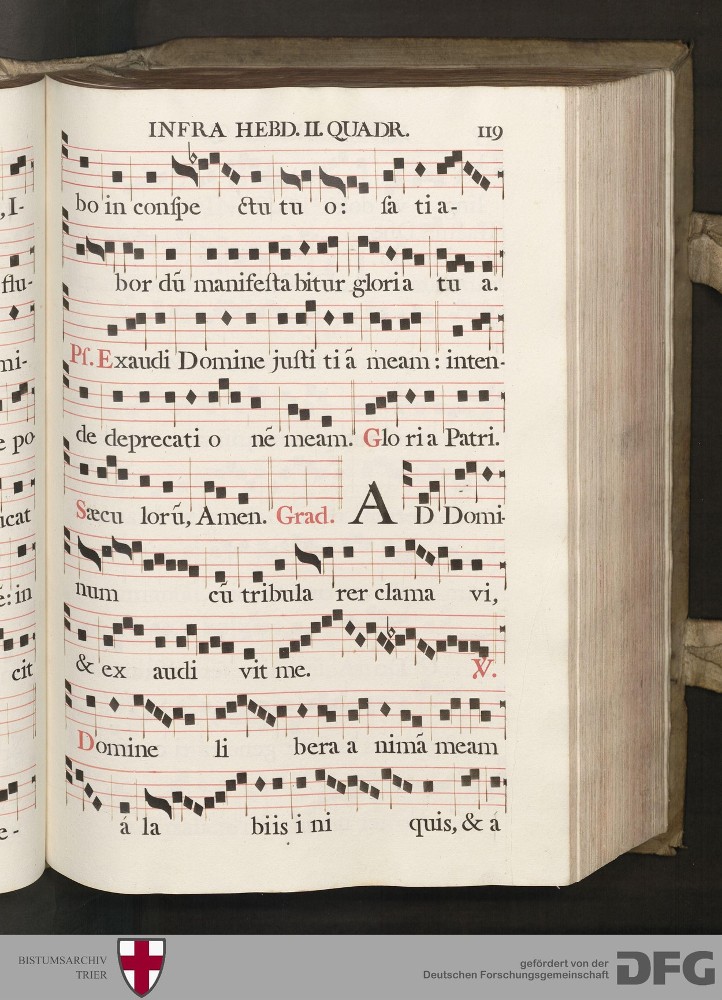 INFRA HEBD. II. QUADR. 119
bo in conſpe ctu tu o: ſa ti a-
bor dū manifeſta bitur gloria tu a.
Pſ. Exaudi Domine juſti ti ā meam: inten-
de deprecati o nē meam. Glo ri a Patri.
Sæcu lorū, Amen. Grad. A D Domi-
num cū tribula rer clama vi,
& ex audi vit me. ℣.
Domine li bera a nimā meam
á la biis i ni quis, & á
, I-
flu-
mi-
e po
icat
é: in
cit
e-
BISTUMSARCHIV
TRIER
gefördert von der
Deutschen Forschungsgemeinschaft
DFG